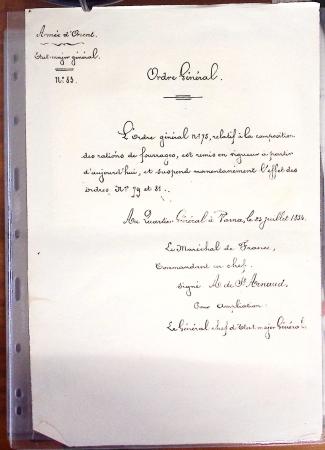 Armée d'Orient.
Etat-major général.
N° 83.
Ordre Général.
L'Ordre général n° 75, relatif à la composition
des rations de fourrages, est remis en vigueur à partir
d'aujourd'hui, et suspend momentanément l'effet des
ordres N° 79 et 81.
Au Quartier Général à Varna, le 22 juillet 1854.
Le Maréchal de France,
Commandant en chef,
Signé A. de St Arnaud.
Pour Ampliation:
Le Général chef d'Etat major Général.